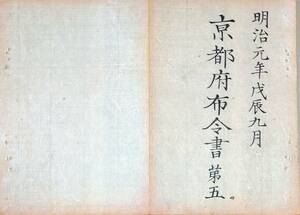 明治元年戊辰九月
京都府布令書 第五